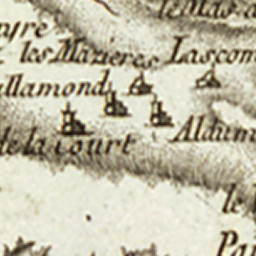 le Mas
les Mazieres
Lascom
llamond
Aldum
de la Court
le
Pai